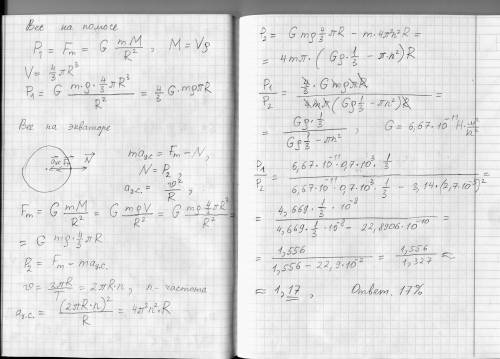 Вес на полюсе
P₁ = Fₘ = G mM/R² , M = Vρ
V = 4/3 πR³
P₁ = G (m·ρ·4/3 πR³)/R² = 4/3 G·mρπR
Вес на экваторе
aц.с. Fₘ N
maц.с. = Fₘ - N,
N = P₂ ,
aц.с. = v²/R ,
Fₘ = G mM/R² = G mρV/R² = G (mρ 4/3 πR³)/R² =
= G mρ·4/3 πR
P₂ = Fₘ - maц.с.
v = 2πR/T = 2πR·n ; n - частота
aц.с. = (2πR·n)²/R = 4π²n²·R
P₂ = G mρ 4/3 πR - m·4π²n²R =
= 4mπ·(Gρ·1/3 - π·n²)R
P₁/P₂ = (4/3·G mρπR)/(4mπ(Gρ 1/3 - πn²)R) =
= (Gρ·1/3)/(Gρ 1/3 - πn²) , G = 6,67·10⁻¹¹ Н·м²/кг²
P₁/P₂ = (6,67·10⁻¹¹·0,7·10³·1/3)/(6,67·10⁻¹¹·0,7·10³·1/3 - 3,14·(2,7·10⁻⁵)²) =
= (4,669·1/3·10⁻⁸)/(4,669·1/3·10⁻⁸ - 22,8906·10⁻¹⁰) =
= 1,556/(1,556 - 22,9·10⁻²) = 1,556/1,327 ≈
≈ 1,17 , Ответ. 17%